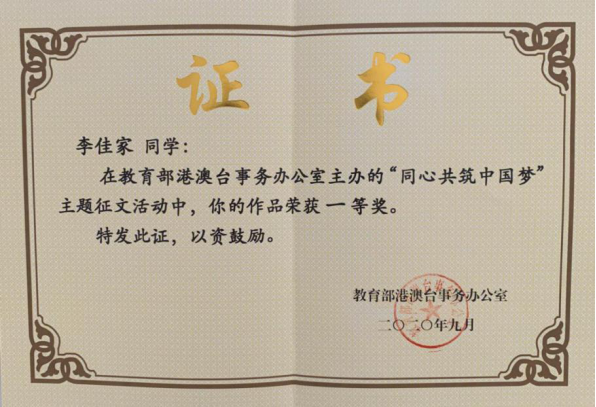 证 书
李佳家 同学：
在教育部港澳台事务办公室主办的“同心共筑中国梦”
主题征文活动中，你的作品荣获 一等奖。
特发此证，以资鼓励。
教育部港澳台事务办公室
二〇二〇年九月